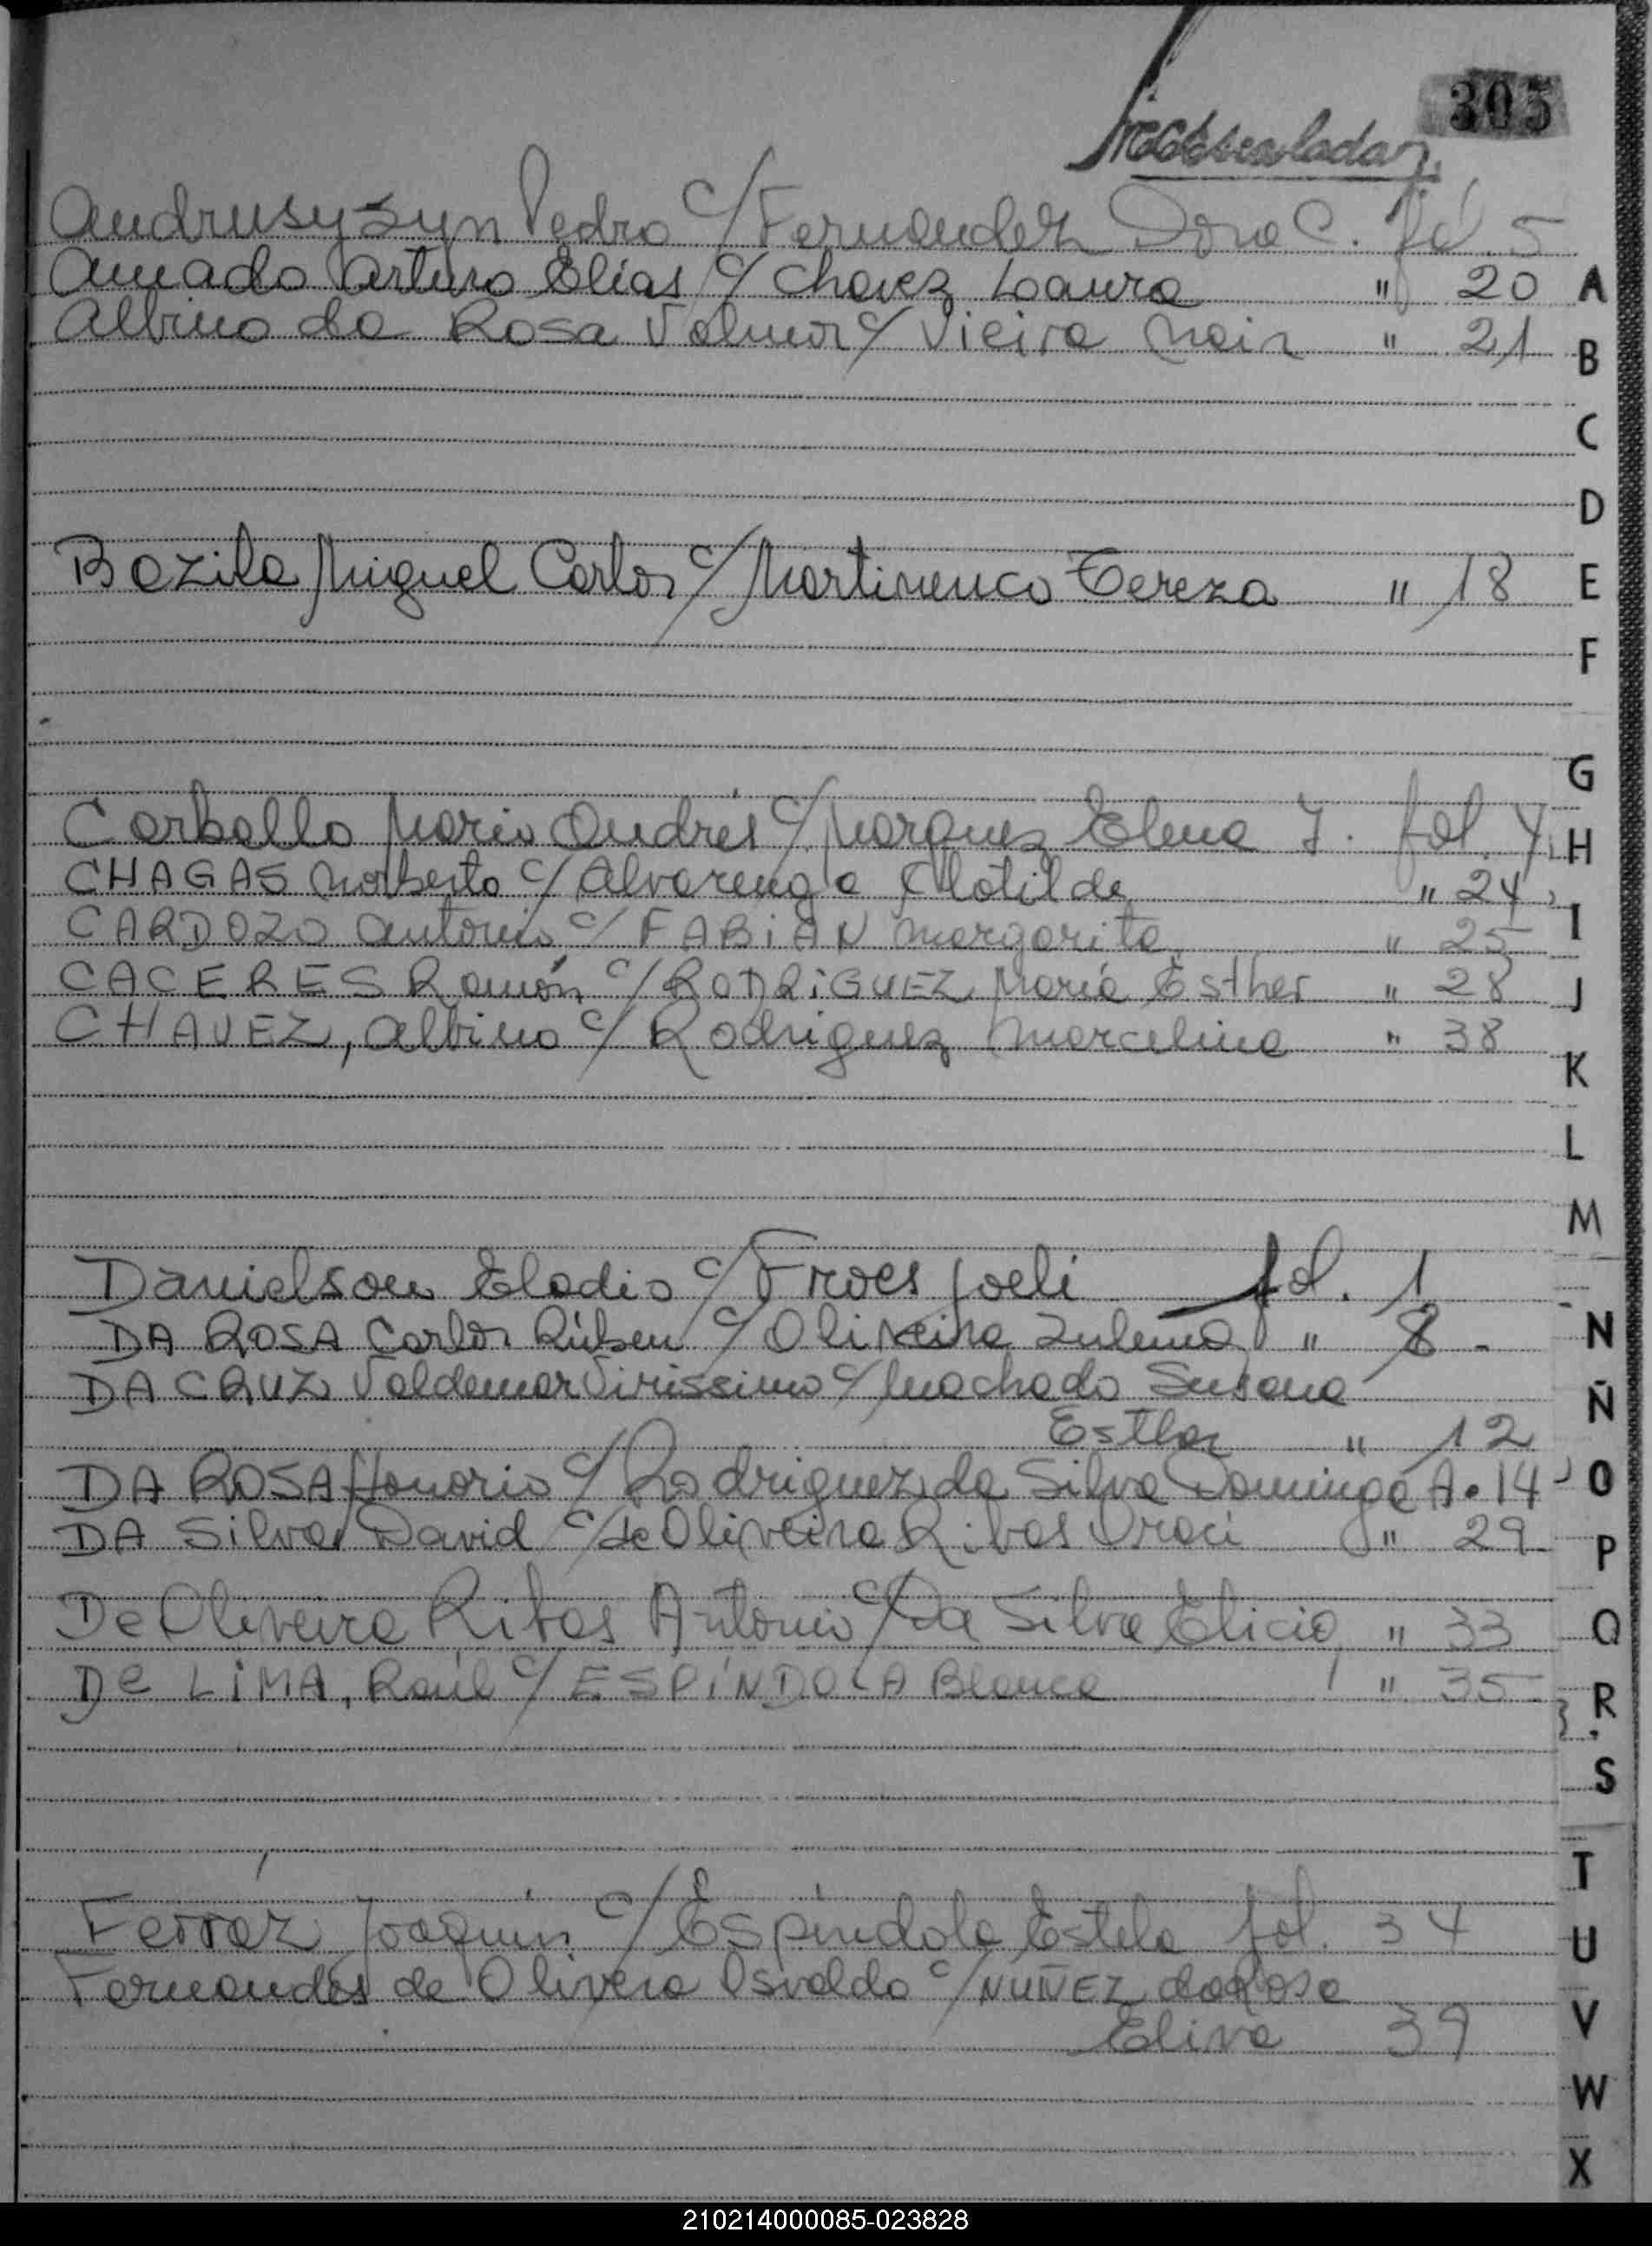 305
Andrusyszyn Pedro c/ Fernandez Dora C. fol. 5
Amado Arturo Elías c/ Chavez Laura " 20
Albino da Rosa Valmor c/ Vieira Nair " 21
Bazila Miguel Carlos c/ Martinenco Tereza " 18
Carballo Mario Andrés c/ Marquez Elena J. fol. 4
CHAGAS Norberto c/ Alvarenga Clotilde " 24
CARDOZO Antonio c/ FABIÁN Margarita " 25
CACERES Ramón c/ RODRIGUEZ María Esther " 28
CHAVEZ, Albino c/ Rodriguez Marcelina " 38
Danielson Eladio c/ Froes Joeli fol. 1
DA ROSA Carlos Rúben c/ Oliveira Zulema " 8 -
DA CRUZ Valdemar Virissimo c/ Machado Susana
Esther " 12
DA ROSA Honorio c/ Rodriguez da Silva Dominga A. 14
DA Silva David c/ de Oliveira Ribas Iraci " 29
De Oliveira Ribas Antonio c/ Da Silva Elicia " 33
De LIMA, Raúl c/ ESPÍNDOLA Blanca " 35
Ferraz Joaquín c/ Espíndola Estela fol. 34
Fernandes de Olivera Osvaldo c/ NUÑEZ da Rosa
Eliva 39
A
B
C
D
E
F
G
H
I
J
K
L
M
N
Ñ
O
P
Q
R
S
T
U
V
W
X
210214000085-023828